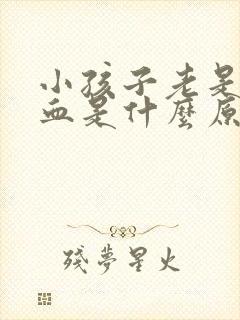 小孩子老是
血是什麼原
殘夢星火